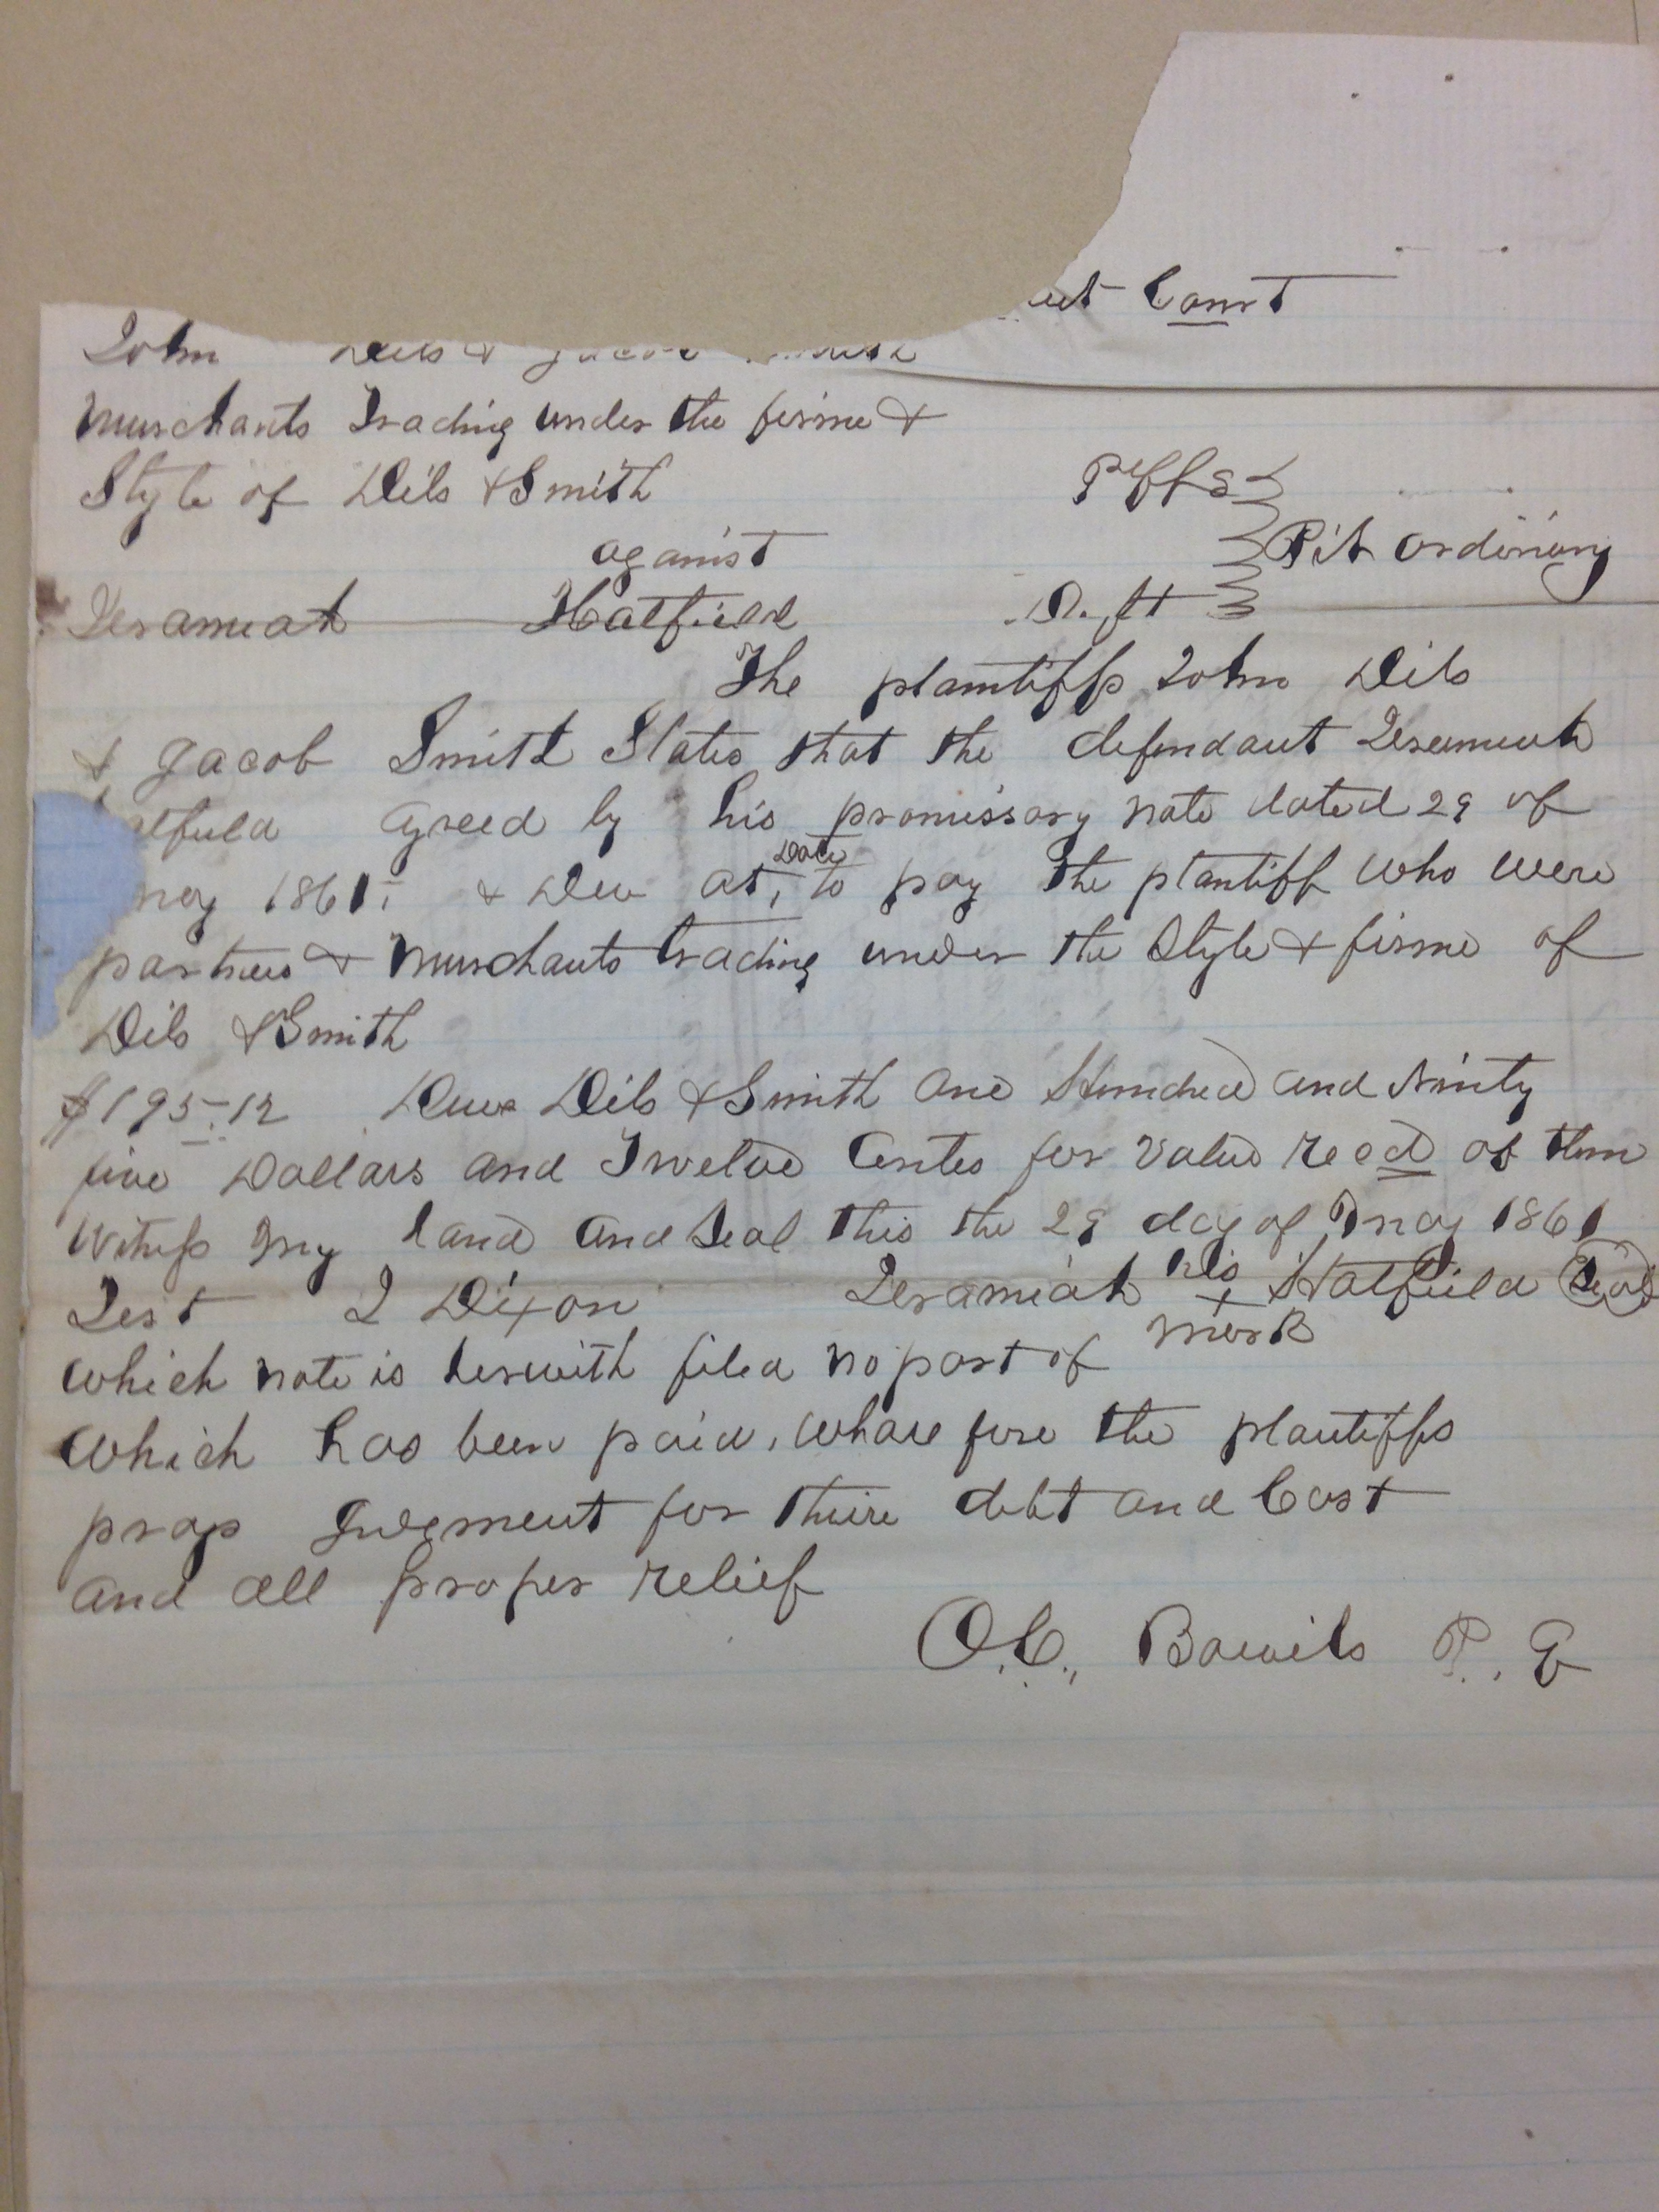 Court
John Dils & Jacob
Murchants Trading under the firme &
Style of Dils & Smith Plffs
against Pit ordinary
Jeramiah Hatfield Deft
The plantiffs John Dils
& Jacob Smith States that the defendant Jeremiah
atfield agreed by his promissory note dated 29 of
may 1861 & Due at Date to pay the plantiff who were
partners & Murchants trading under the Style & firme of
Dils & Smith
$195.12 Due Dils & Smith one Hundred and Ninty
five Dollars and Twelve Centes for value recd of them
Witness my hand and Seal this the 29 day of may 1861
Test J Dixon Jeramiah his X mark Hatfield Seal
which note is herwith filed no part of
which has been paid, whare fore the plantiffs
pray Judgment for thire debt and Cost
and all proper relief
O. C. Bowils P. Q